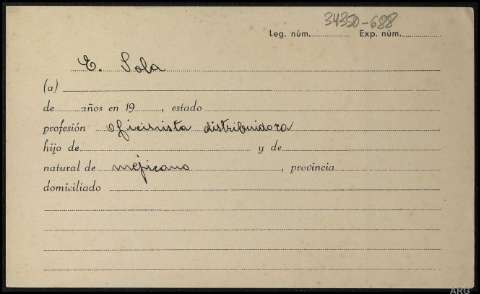 34350-688
Leg. núm. Exp. núm.
E. Sola
(a)
de años en 19 , estado
profesión oficinista distribuidora
hijo de y de
natural de mejicano , provincia
domiciliado
ARG